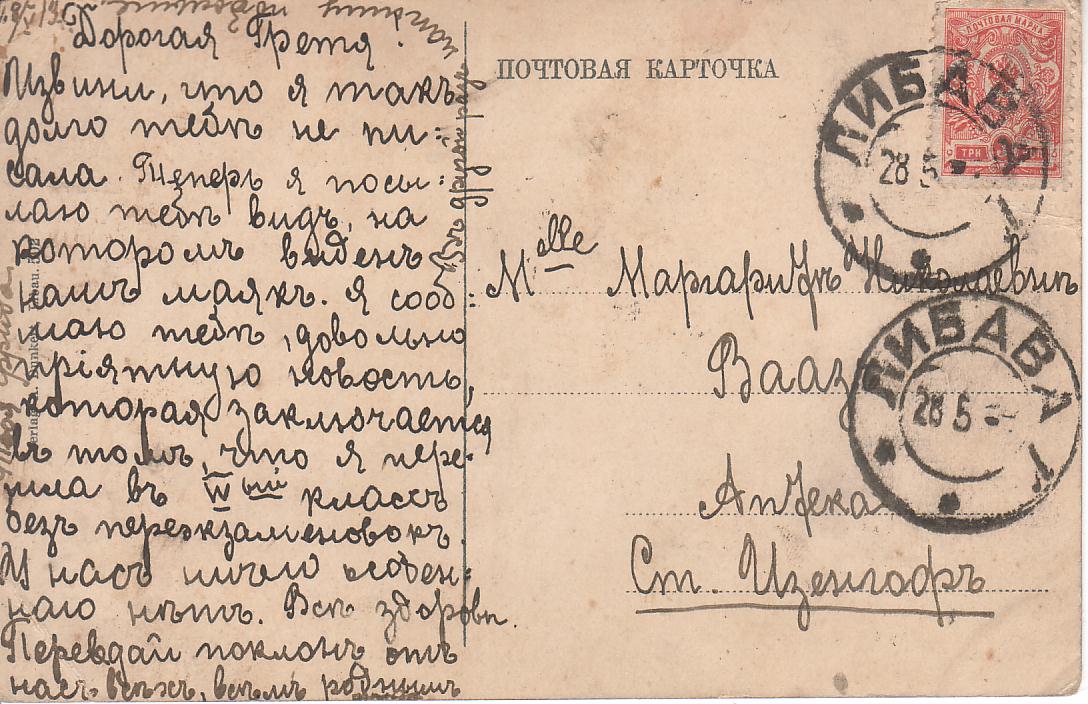 Дорогая Гретя!
Извини, что я такъ
долго тебѣ не пи=
сала. Теперь я посы=
лаю тебѣ видъ, на
которомъ виденъ
нашъ маякъ. Я сооб=
щаю тебѣ, довольно
пріятную новость,
которая заключается
въ томъ, что я пере-
шла въ IV ый классъ
безъ переэкзаменовокъ.
У насъ ничего особен=
наго нѣтъ. Всѣ здоровы.
Передай поклонъ отъ
насъ всѣхъ, всѣмъ роднымъ
Въ другой разъ
ПОЧТОВАЯ КАРТОЧКА
ПОЧТОВАЯ МАРКА
ТРИ
ЛИБАВА
28 5
Melle Маргаритѣ Николаевнѣ
Вааз
ЛИБАВА
28 5
Аптека
Ст. Иценгофъ